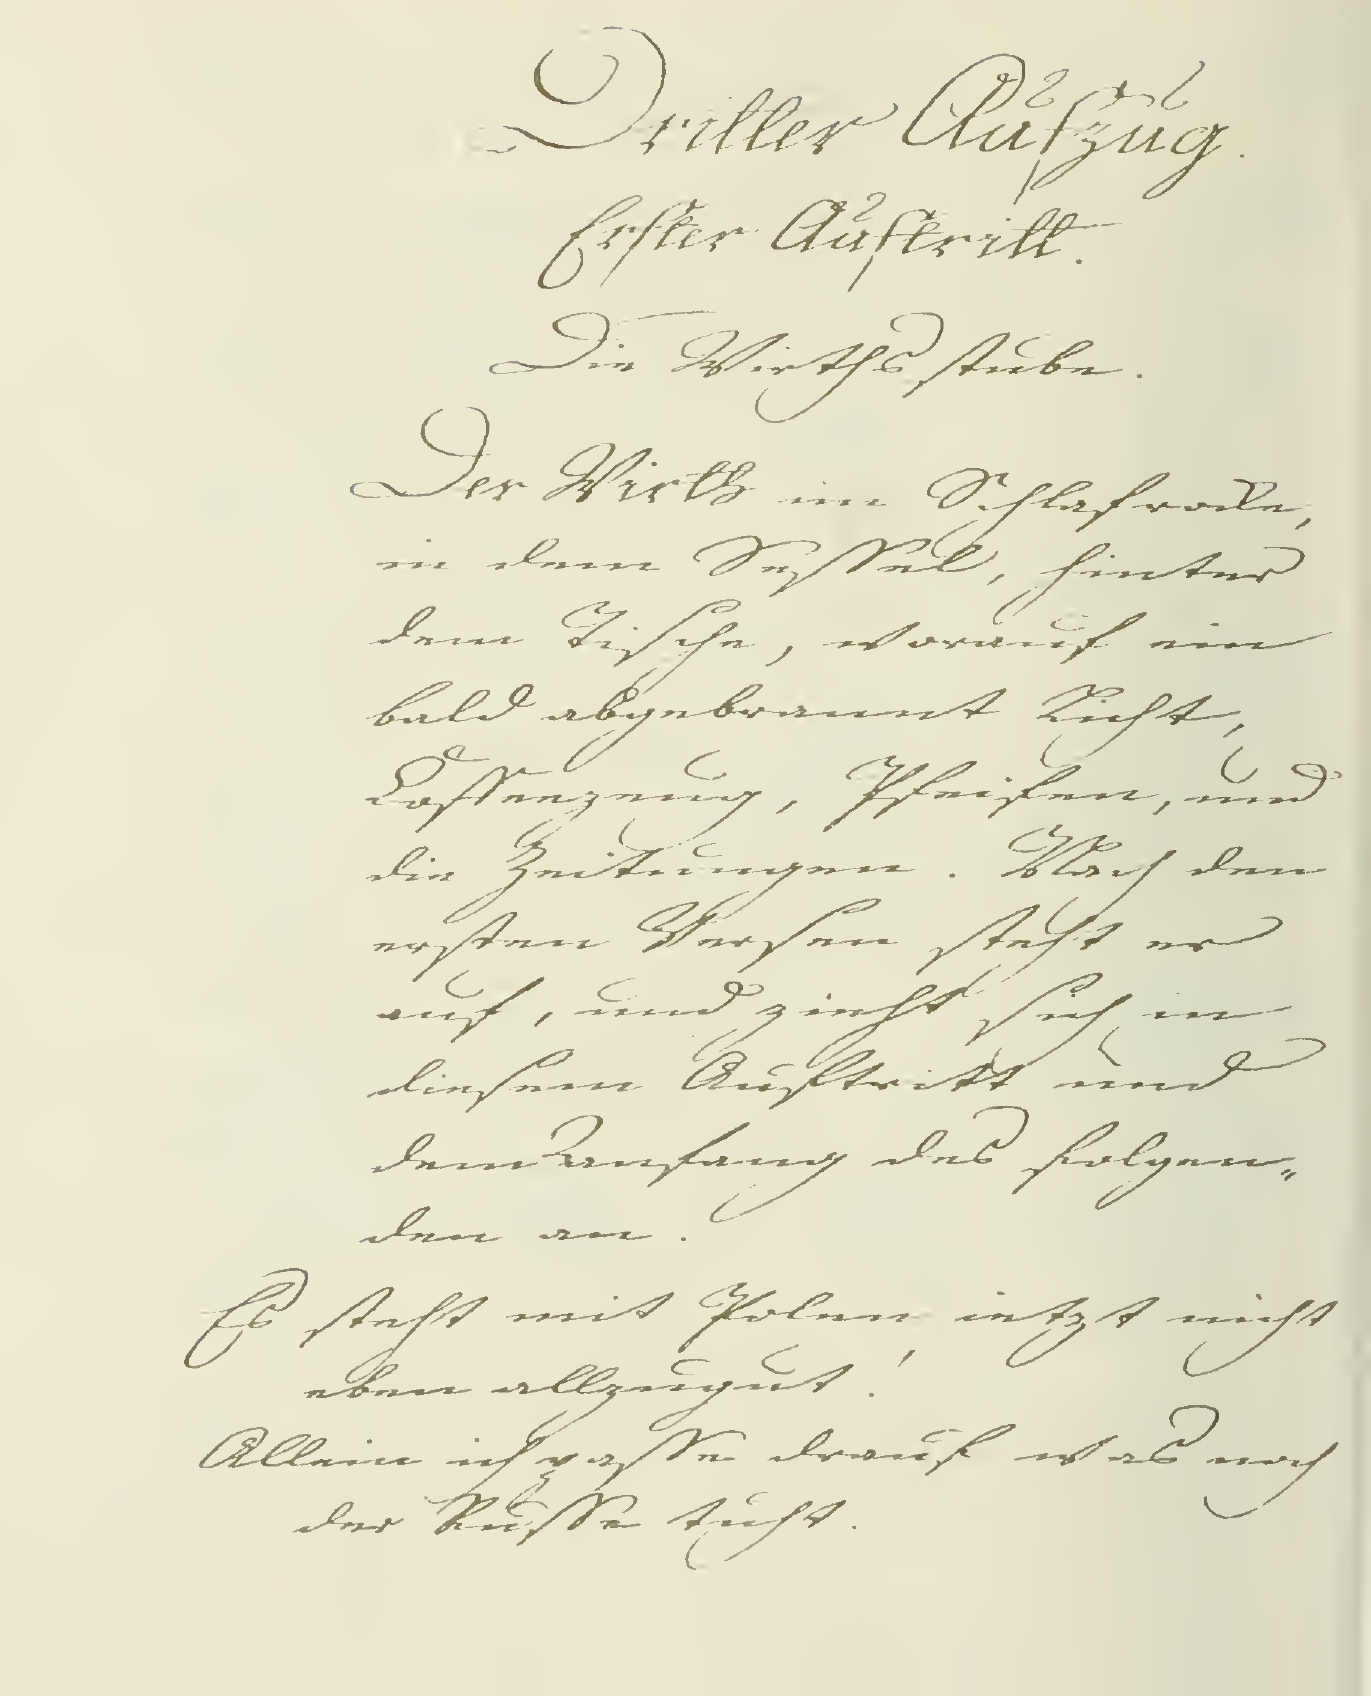 Dritter Aufzug.
Erster Auftritt.
Die Wirthsstube.
Der Wirth im Schlafrocke,
in dem Sessel, hinter
dem Tische, worauf ein
bald abgebrannt Licht,
Coffeezeug, Pfeifen, und
die Zeitungen. Nach den
ersten Versen steht er
auf, und zieht sich in
diesem Auftritt und
dem Anfang des folgen„
den an.
Es steht mit Polen ietzt nicht
eben allzugut!
Allein ich passe drauf was noch
der Russe tuht.